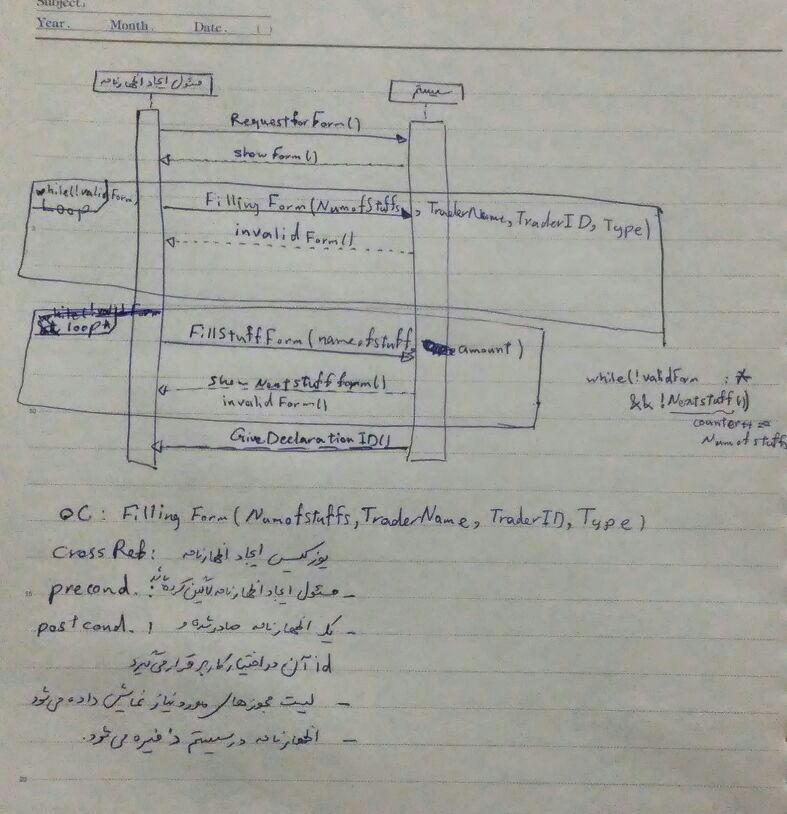 Subject:
Year. Month. Date. ( )
مسئول ایجاد اظهارنامه
سیستم
RequestforForm()
showForm()
while(!validForm)
Loop
Filling Form(NumofStuffs, TraderName, TraderID, Type)
invalidForm()
loop*
FillStuffForm(nameofstuff, amount)
show Nextstuff form()
invalidForm()
while(!validForm :*
&& !Nextstuff())
counter++ =
Numofstuffs
GiveDeclarationID()
OC: Filling Form(Numofstuffs, TraderName, TraderID, Type)
Cross Ref: یوزکیس ایجاد اظهارنامه
precond. : - مسئول ایجاد اظهارنامه لاگین کرده باشد
postcond. : - یک اظهارنامه صادر شده و
id آن در اختیار کاربر قرار می‌گیرد
- لیست مجوزهای مورد نیاز نمایش داده می‌شود
- اظهارنامه در سیستم ذخیره می‌شود.